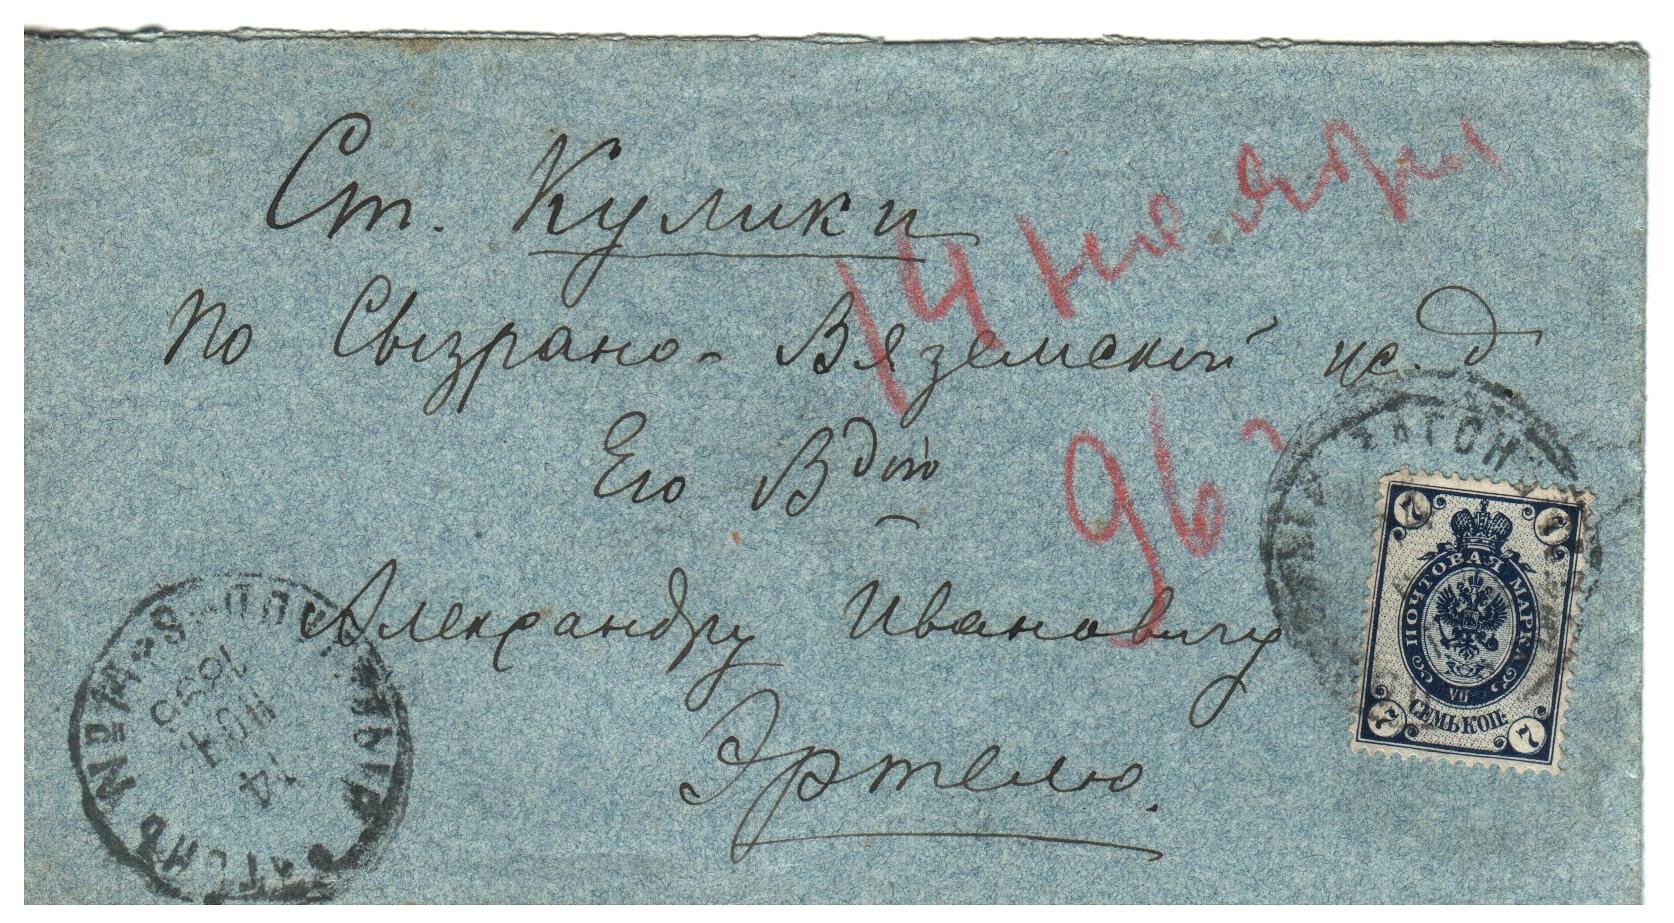 Ст. Кулики
14 ноября
96
по Сызрано-Вяземской ж. д
Его Вдію
Александру Ивановичу
Эртелю.
7 7
ПОЧТОВАЯ МАРКА
VII
СЕМЬ КОП.
7 7
ВАГОНЪ
ПОЧТОВ. ВАГОНЪ №
14
НОЯ